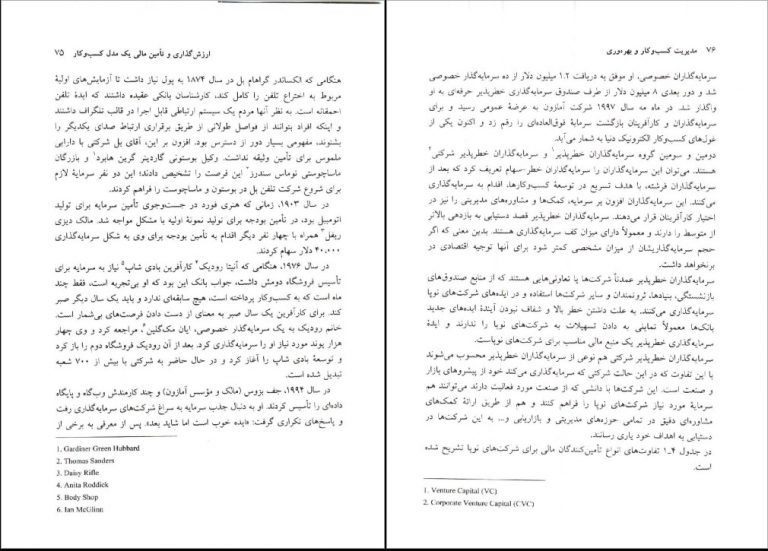 ارزش‌گذاری و تأمین مالی یک مدل کسب‌وکار ۷۵
هنگامی که الکساندر گراهام بل در سال ۱۸۷۴ به پول نیاز داشت تا آزمایش‌های اولیهٔ
مربوط به اختراع تلفن را کامل کند، کارشناسان بانکی عقیده داشتند که ایدهٔ تلفن
احمقانه است. به نظر آنها مردم یک سیستم ارتباطی قابل اجرا در قالب تلگراف داشتند
و اینکه افراد بتوانند از فواصل طولانی از طریق برقراری ارتباط صدای یکدیگر را
بشنوند، مفهومی بسیار دور از دسترس بود. افزون بر این، آقای بل شرکتی با دارایی
ملموس برای تأمین وثیقه نداشت. وکیل بوستونی گاردینر گرین هابرد۱ و بازرگان
ماساچوستی توماس سندرز۲ این فرصت را تشخیص دادند؛ این دو نفر سرمایهٔ لازم
برای شروع شرکت تلفن بل در بوستون و ماساچوست را فراهم کردند.
در سال ۱۹۰۳، زمانی که هنری فورد در جست‌وجوی تأمین سرمایه برای تولید
اتومبیل بود، در تأمین بودجه برای تولید نمونهٔ اولیه با مشکل مواجه شد. مالک دیزی
ریفل۳ همراه با چهار نفر دیگر اقدام به تأمین بودجه برای وی به شکل سرمایه‌گذاری
۴۰،۰۰۰ دلار سهام کردند.
در سال ۱۹۷۶، هنگامی که آنیتا رودیک۴ کارآفرین بادی شاپ۵ نیاز به سرمایه برای
تأسیس فروشگاه دومش داشت، جواب بانک این بود که او بی‌تجربه است، فقط چند
ماه است که به کسب‌وکار پرداخته است، هیچ سابقه‌ای ندارد و باید یک سال دیگر صبر
کند. برای کارآفرین یک سال صبر به معنای از دست دادن فرصت‌های بی‌شمار است.
خانم رودیک به یک سرمایه‌گذار خصوصی، ایان مک‌گلین۶، مراجعه کرد و وی چهار
هزار پوند مورد نیاز او را سرمایه‌گذاری کرد. بعد از آن رودیک فروشگاه دوم را باز کرد
و توسعهٔ بادی شاپ را آغاز کرد و در حال حاضر به شرکتی با بیش از ۷۰۰ شعبه
تبدیل شده است.
در سال ۱۹۹۴، جف بزوس (مالک و مؤسس آمازون) و چند کارمندش وب‌گاه و پایگاه
داده‌ای را تأسیس کردند. او به دنبال جذب سرمایه به سراغ شرکت‌های سرمایه‌گذاری رفت
و پاسخ‌های تکراری گرفت: «ایده خوب است اما شاید بعد». پس از معرفی به برخی از
1. Gardiner Green Hubbard
2. Thomas Sanders
3. Daisy Rifle
4. Anita Roddick
5. Body Shop
6. Ian McGlinn
۷۶ مدیریت کسب‌وکار و بهره‌وری
سرمایه‌گذاران خصوصی، او موفق به دریافت ۱.۲ میلیون دلار از ده سرمایه‌گذار خصوصی
شد و دور بعدی ۸ میلیون دلار از طرف صندوق سرمایه‌گذاری خطرپذیر حرفه‌ای به او
واگذار شد. در ماه مه سال ۱۹۹۷ شرکت آمازون به عرضهٔ عمومی رسید و برای
سرمایه‌گذاران و کارآفرینان بازگشت سرمایهٔ فوق‌العاده‌ای را رقم زد و اکنون یکی از
غول‌های کسب‌وکار الکترونیک دنیا به شمار می‌آید.
دومین و سومین گروه سرمایه‌گذاران خطرپذیر۱ و سرمایه‌گذاران خطرپذیر شرکتی۲
هستند. می‌توان این سرمایه‌گذاران را سرمایه‌گذاران خطر-سهام تعریف کرد که بعد از
سرمایه‌گذاران فرشته، با هدف تسریع در توسعهٔ کسب‌وکارها، اقدام به سرمایه‌گذاری
می‌کنند. این سرمایه‌گذاران افزون بر سرمایه، کمک‌ها و مشاوره‌های مدیریتی را نیز در
اختیار کارآفرینان قرار می‌دهند. سرمایه‌گذاران خطرپذیر قصد دستیابی به بازدهی بالاتر
از متوسط را دارند و معمولاً دارای میزان کف سرمایه‌گذاری هستند. بدین معنی که اگر
حجم سرمایه‌گذاریشان از میزان مشخصی کمتر شود برای آنها توجیه اقتصادی در
برنخواهد داشت.
سرمایه‌گذاران خطرپذیر عمدتاً شرکت‌ها یا تعاونی‌هایی هستند که از منابع صندوق‌های
بازنشستگی، بنیادها، ثروتمندان و سایر شرکت‌ها استفاده و در ایده‌های شرکت‌های نوپا
سرمایه‌گذاری می‌کنند. به علت داشتن خطر بالا و شفاف نبودن آیندهٔ ایده‌های جدید
بانک‌ها معمولاً تمایلی به دادن تسهیلات به شرکت‌های نوپا را ندارند و ایدهٔ
سرمایه‌گذاری خطرپذیر یک منبع مالی مناسب برای شرکت‌های نوپاست.
سرمایه‌گذاران خطرپذیر شرکتی هم نوعی از سرمایه‌گذاران خطرپذیر محسوب می‌شوند
با این تفاوت که در این حالت شرکتی که سرمایه‌گذاری می‌کند خود از پیشروهای بازار
و صنعت است. این شرکت‌ها با دانشی که از صنعت مورد فعالیت دارند می‌توانند هم
سرمایهٔ مورد نیاز شرکت‌های نوپا را فراهم کنند و هم از طریق ارائهٔ کمک‌های
مشاوره‌ای دقیق در تمامی حوزه‌های مدیریتی و بازاریابی و... به این شرکت‌ها در
دستیابی به اهداف خود یاری رسانند.
در جدول ۴-۱ تفاوت‌های انواع تأمین‌کنندگان مالی برای شرکت‌های نوپا تشریح شده
است.
1. Venture Capital (VC)
2. Corporate Venture Capital (CVC)